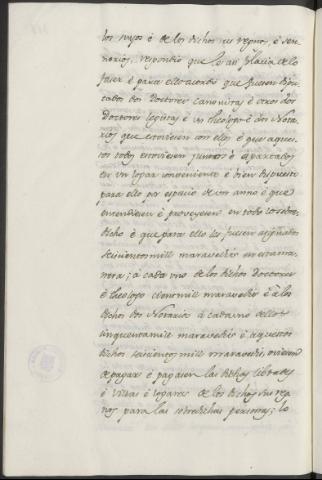 los suyos è de los dichos sus regnos, è sen-
norios, respondio que le avi plazia de lo
facer è para ello acordó que fuesen dipu-
tados dos Doctores canonistas è otros dos
Doctores legistas è un theologo è dos Nota-
rios que estoviesen con ellos è que aques-
tos todos estoviesen juntos è apartados
en un logar conveniente è bien dispuesto
para ello por espacio de un anno è que
entendiesen è proveyesen en todo lo sobre-
dicho è que para ello les fuesen asignados
seiscientos mill maravedis en esta ma-
nera; à cada uno de los dichos Doctores
è theologo cient mill maravedis è à los
dichos dos Notarios à cada uno dellos
cinquenta mill maravedis è aquestos
dichos seiscientos mill maravedis, oviesen
de pagar è pagasen las dichas cibdades
è villas è logares de los dichos sus reg-
nos para las sobredichas personas; lo